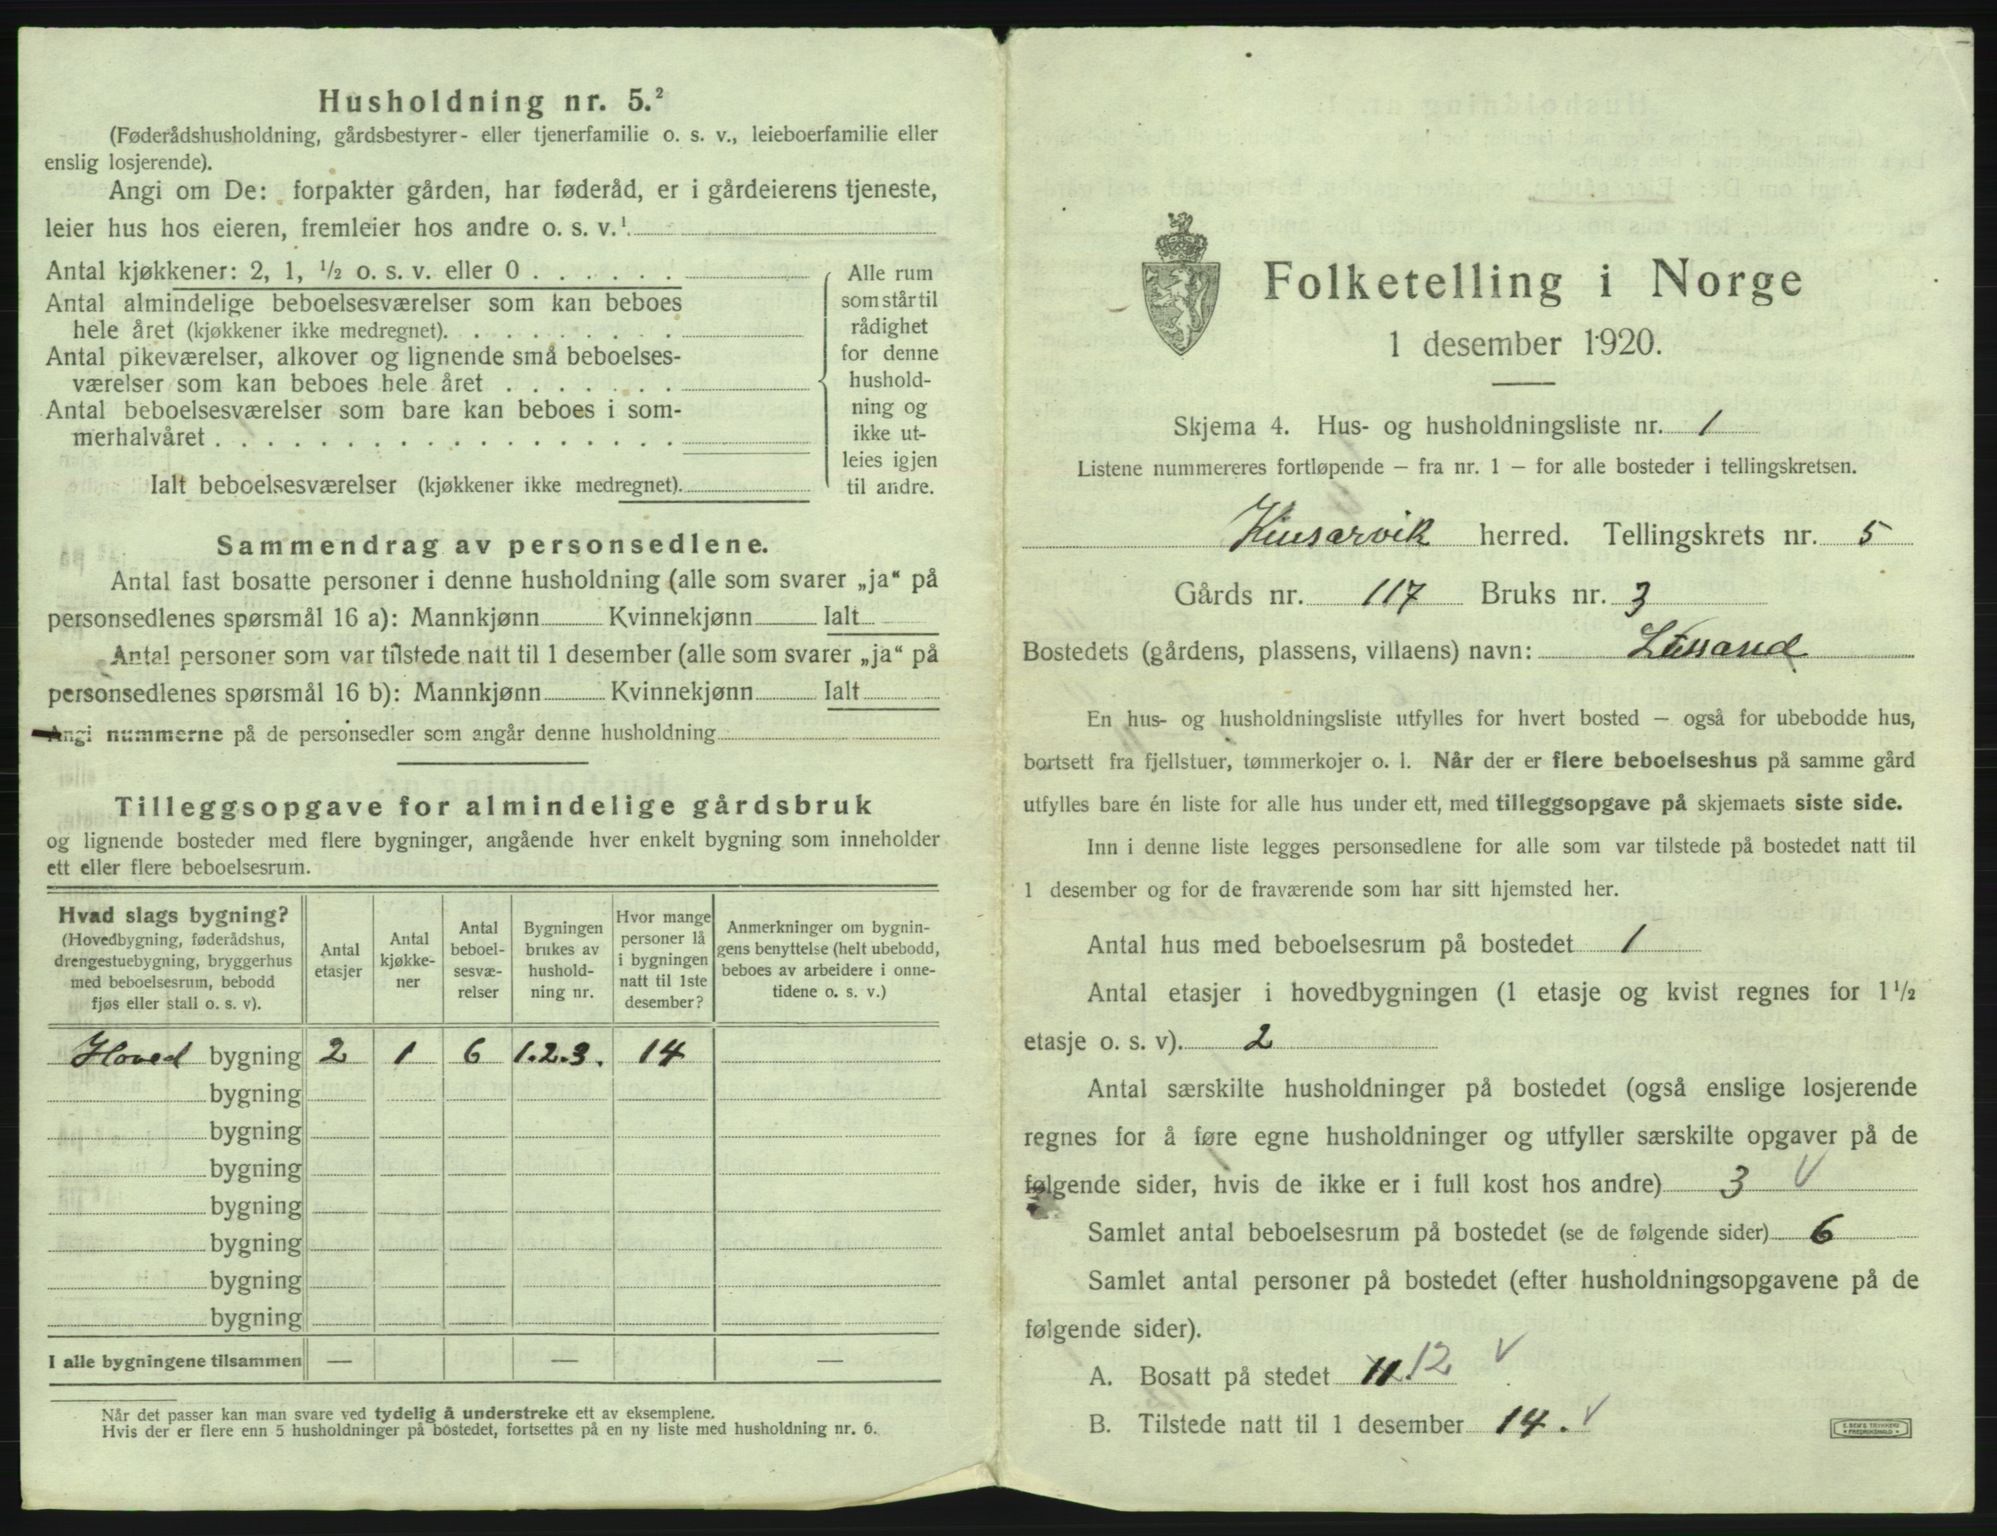 Husholdning nr. 5.²
(Føderådshusholdning, gårdsbestyrer- eller tjenerfamilie o. s. v., leieboerfamilie eller
enslig losjerende).
Angi om De: forpakter gården, har føderåd, er i gårdeierens tjeneste,
leier hus hos eieren, fremleier hos andre o. s. v.¹
Antal kjøkkener: 2, 1, ½ o. s. v. eller 0
Antal almindelige beboelsesværelser som kan beboes
hele året (kjøkkener ikke medregnet)
Antal pikeværelser, alkover og lignende små beboelses-
værelser som kan beboes hele året
Antal beboelsesværelser som bare kan beboes i som-
merhalvåret
Ialt beboelsesværelser (kjøkkener ikke medregnet)
Alle rum
som står til
rådighet
for denne
hushold-
ning og
ikke ut-
leies igjen
til andre.
Sammendrag av personsedlene.
Antal fast bosatte personer i denne husholdning (alle som svarer „ja“ på
personsedlenes spørsmål 16 a): Mannkjønn Kvinnekjønn Ialt
Antal personer som var tilstede natt til 1 desember (alle som svarer „ja“ på
personsedlenes spørsmål 16 b): Mannkjønn Kvinnekjønn Ialt
Angi nummerne på de personsedler som angår denne husholdning
Tilleggsopgave for almindelige gårdsbruk
og lignende bosteder med flere bygninger, angående hver enkelt bygning som inneholder
ett eller flere beboelsesrum.
Hvad slags bygning?
(Hovedbygning, føderådshus,
drengestuebygning, bryggerhus
med beboelsesrum, bebodd
fjøs eller stall o. s. v).
Antal
etasjer
Antal
kjøkke-
ner
Antal
beboel-
sesvæ-
relser
Bygningen
brukes av
hushold-
ning nr.
Hvor mange
personer lå
i bygningen
natt til 1ste
desember?
Anmerkninger om bygnin-
gens benyttelse (helt ubebodd,
beboes av arbeidere i onne-
tidene o. s. v.)
Hoved bygning 2 1 6 1.2.3. 14
bygning
bygning
bygning
bygning
bygning
bygning
bygning
I alle bygningene tilsammen — — —
Når det passer kan man svare ved tydelig å understreke ett av eksemplene.
Hvis der er flere enn 5 husholdninger på bostedet, fortsettes på en ny liste med husholdning nr. 6.
Folketelling i Norge
1 desember 1920.
Skjema 4. Hus- og husholdningsliste nr. 1
Listene nummereres fortløpende – fra nr. 1 – for alle bosteder i tellingskretsen.
Kinsarvik herred. Tellingskrets nr. 5
Gårds nr. 117 Bruks nr. 3
Bostedets (gårdens, plassens, villaens) navn:
En hus- og husholdningsliste utfylles for hvert bosted – også for ubebodde hus,
bortsett fra fjellstuer, tømmerkojer o. l. Når der er flere beboelseshus på samme gård
utfylles bare én liste for alle hus under ett, med tilleggsopgave på skjemaets siste side.
Inn i denne liste legges personsedlene for alle som var tilstede på bostedet natt til
1 desember og for de fraværende som har sitt hjemsted her.
Antal hus med beboelsesrum på bostedet 1
Antal etasjer i hovedbygningen (1 etasje og kvist regnes for 1½
etasje o. s. v). 2
Antal særskilte husholdninger på bostedet (også enslige losjerende
regnes for å føre egne husholdninger og utfyller særskilte opgaver på de
følgende sider, hvis de ikke er i full kost hos andre) 3 V
Samlet antal beboelsesrum på bostedet (se de følgende sider) 6
Samlet antal personer på bostedet (efter husholdningsopgavene på de
følgende sider).
A. Bosatt på stedet 11 12 V
B. Tilstede natt til 1 desember 14. V
E. SEM'S TRYKKERI
FREDRIKSHALD